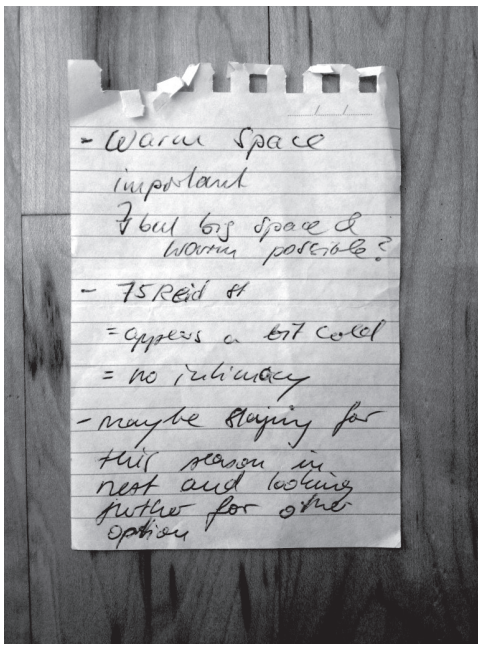 - Warm Space
important
↳ but big space &
warm possible?
- 75 Reid st
= appears a bit cold
= no intimacy
- maybe staying for
this season in
nest and looking
further for other
option